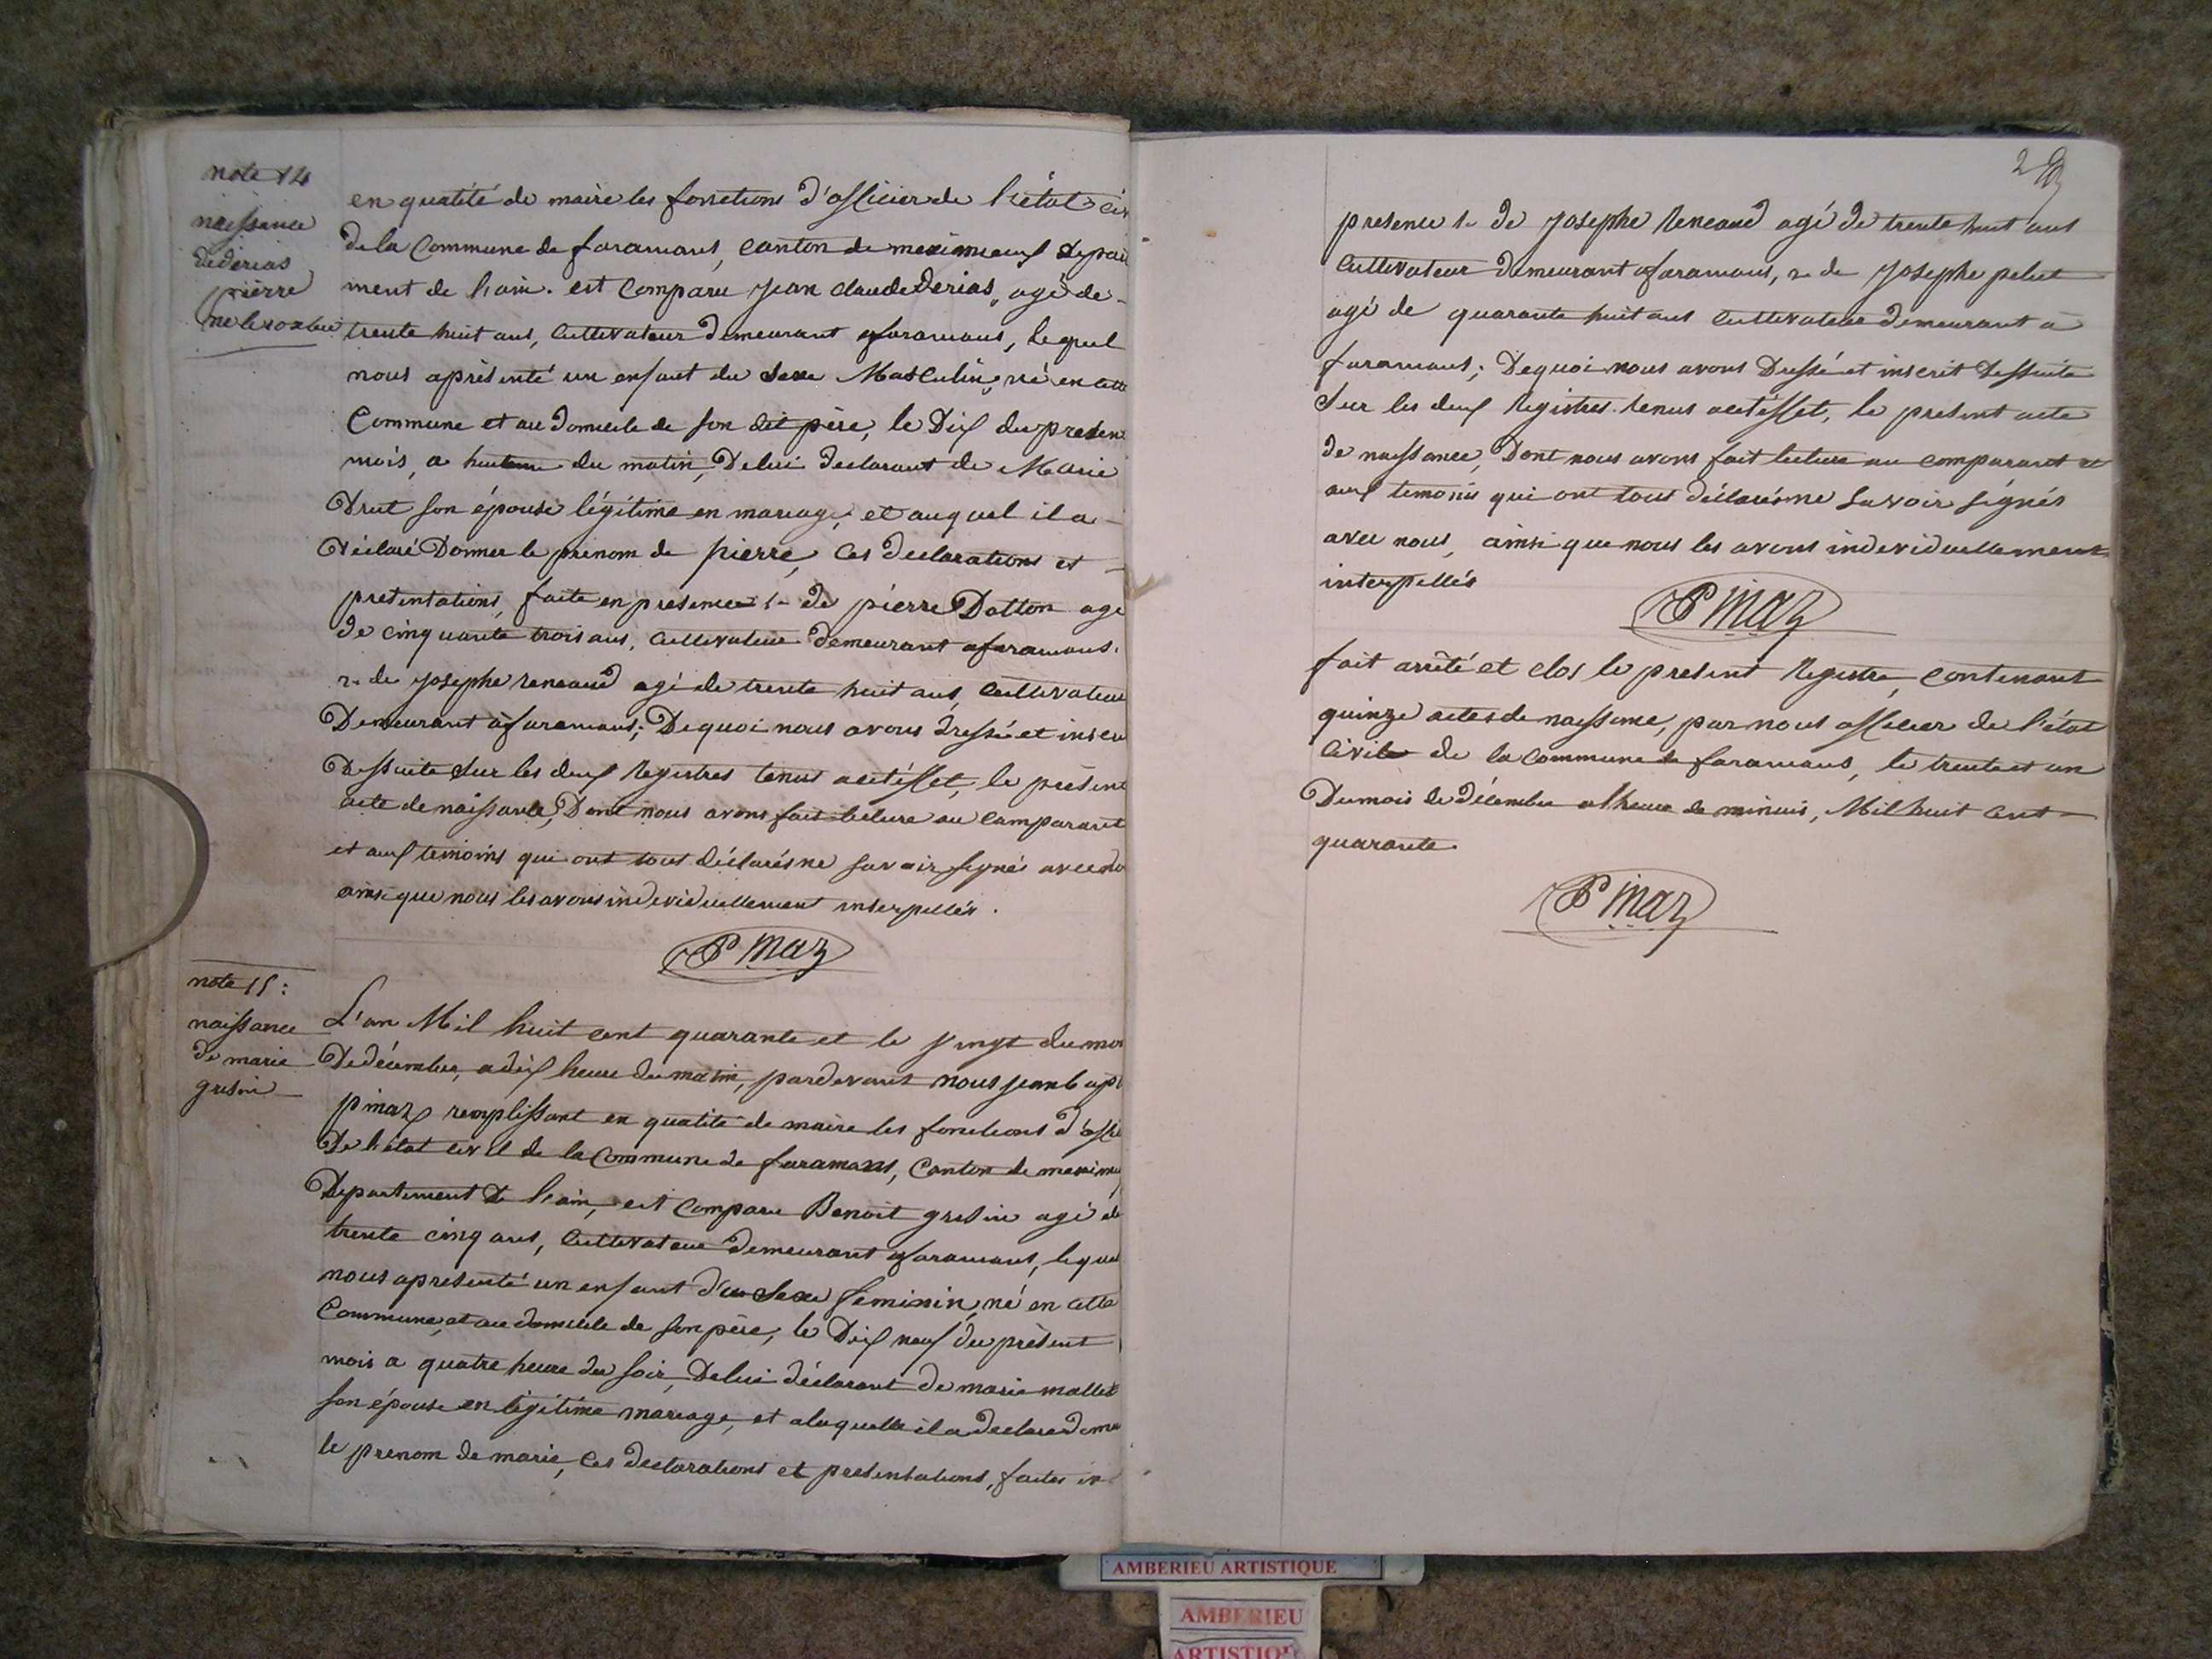 note 14
naissance
de derias
pierre
né le 10 xbre
en qualité de maire les fonctions d'officier de l'état civ
de la Commune de faramans, canton de meximieux depar
ment de l'ain. est comparu jean claude Derias, agé de
trente huit ans, cultivateur demeurant afaramans, lequel
nous aprésenté un enfant du sexe Masculin, né en cette
Commune et au domicile de son dit père, le Dix du presen
mois, a huit du matin, De lui declarant de Marie
Drut son épouse légitime en mariage, et auquel il a
déclaré Donner le prénom de pierre, ces declarations et
presentations, faite en presence 1- de pierre Dotton agé
de cinquante trois ans, cultivateur demeurant afaramans.
2- de josephe reneaud agé de trente huit ans, cultivateur
Demeurant afaramans; De quoi nous avons dressé et inscri
Dessuite sur les deux registres tenus acetéffet, le présent
acte de naissance, Dont nous avons fait lecture au comparant
et aux temoins qui ont tous déclarésne savoir signés avec no
ainsi que nous les avons individuellement interpellés.
P maz
note 15:
naissance
de marie
gresin
L'an Mil huit cent quarante et le vingt du moi
De décembre, adix heure du matin, pardevant nous jean bapt
pinaz remplissant en qualité de maire les fonctions d'offic
De l'état civil de la Commune de faramans, Canton de meximi
Departement de l'ain, est comparu Benoit gresin agé de
trente cinq ans, cultivateur demeurant afaramans, lequel
nous apresenté un enfant du sexe feminin, né en cette
Commune, et au domicile de son père, le Dix neuf du présent
mois a quatre heure du soir, De lui déclarant de marie mallet
son épouse en légitime mariage, et alaquelle il a declaré donner
le prenom de marie, ces declarations et presentations, faites en
29
presence 1- de josephe reneaud agé de trente huit ans
cultivateur demeurant afaramans, 2- de josephe pelut
agé de quarante huit ans cultivateur demeurant a
faramans; De quoi nous avons Dressé et inscrit dessuite
sur les deux registres tenus acetéffet, le present acte
de naissance, Dont nous avons fait lecture au comparant et
aux temoins qui ont tous déclarésne savoir signés
avec nous, ainsi que nous les avons individuellement
interpellés
P maz
fait arrêté et clos le present registre, contenant
quinze actes de naissance, par nous officier de l'état
civile de la commune de faramans, le trente et un
Du mois de décembre a l'heure de minuis, Mil huit cent
quarante.
P maz
AMBERIEU ARTISTIQUE
AMBERIEU
ARTISTIQUE